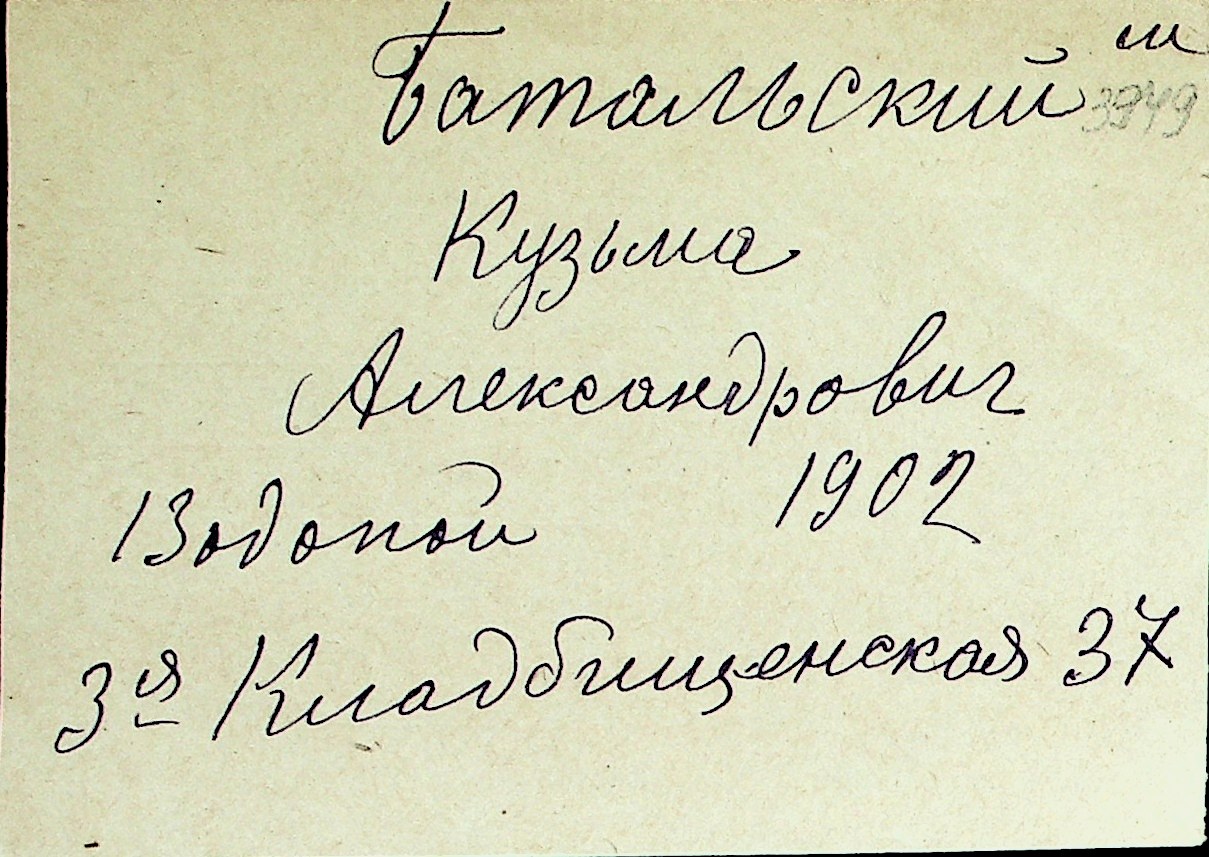 м
Батальский 3949
Кузьма
Александрович
Водопой 1902
3я Кладбищенская 37